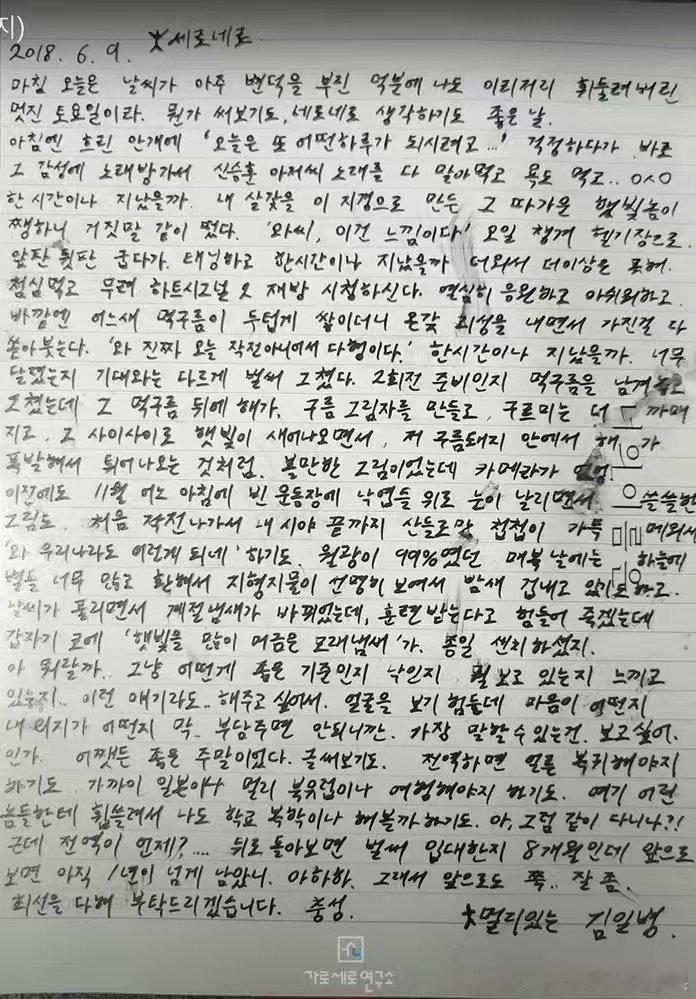 지)
*세로네로
2018. 6. 9.
마침 오늘은 날씨가 아주 변덕을 부린 덕분에 나도 이리저리 휘둘려버린
멋진 토요일이라. 뭔가 써보기도, 네로네로 생각하기도 좋은 날.
아침엔 흐린 안개에 '오늘은 또 어떤하루가 되시려고...' 걱정하다가 바로
그 감성에 노래방가서 신승훈 아저씨 노래를 다 말아먹고 욕도 먹고.. 0ㅅ0
한시간이나 지났을까. 내 살갗을 이 지경으로 만든 그 따가운 햇빛놈이
쨍하니 거짓말 같이 떴다. '와씨, 이건 느낌이다' 오일 챙겨 헬기장으로.
앞판 뒷판 굽다가. 태닝하고 한시간이나 지났을까 더워서 더이상은 못해.
점심먹고 무려 하트시그널 2 재방 시청하신다. 열심히 응원하고 아쉬워하고.
바깥엔 어느새 먹구름이 두텁게 쌓이더니 온갖 괴성을 내면서 가진걸 다
쏟아붓는다. '와 진짜 오늘 작전아니어서 다행이다.' 한시간이나 지났을까. 너무
달렸는지 기대와는 다르게 벌써 그쳤다. 2회전 준비인지 먹구름을 남겨놓고
그쳤는데 그 먹구름 뒤에 해가. 구름 그림자를 만들고, 구르미는 더 까매
지고, 그 사이사이로 햇빛이 새어나오면서, 저 구름돼지 안에서 해가
폭발해서 튀어나오는 것처럼. 볼만한 그림이었는데 카메라가 없엉
이전에도 11월 어느 아침에 빈 운동장에 낙엽들 위로 눈이 날리면서 쓸쓸한
그림도, 처음 작전나가서 내 시야 끝까지 산들로만 첩첩이 가득 메워서
'와 우리나라도 이렇게 되네' 하기도. 월광이 99%였던 매복날에는 하늘에
별들 너무 많고 환해서 지형지물이 선명히 보여서 밤새 겁내고 있기도하고.
날씨가 풀리면서 계절냄새가 바뀌었는데, 훈련받는다고 힘들어 죽겠는데
갑자기 코에 '햇빛을 많이 머금은 모래냄새'가. 종일 센치하셨지.
아 뭐랄까.. 그냥 어떻게 좋은 기준인지 낙인지 뭘 보고 있는지 느끼고
있는지.. 이런 얘기라도.. 해주고 싶어서. 얼굴을 보기 힘든데 마음이 어떤지
내 의지가 어떤지 막.. 부담주면 안되니깐. 가장 말할수있는건. 보고싶어.
인가. 어쨌든 좋은 주말이었다. 글써보기도. 전역하면 얼른 복귀해야지
하기도. 가까이 일본이나 멀리 북유럽이나 여행해야지 하기도. 여기 어린
놈들한테 휩쓸려서 나도 학교 복학이나 해볼까하기도. 아, 그럼 같이 다니나?!
근데 전역이 언제?.... 뒤로 돌아보면 벌써 입대한지 8개월인데 앞으로
보면 아직 1년이 넘게 남았니. 아하하. 그래서 앞으로도 쭉.. 잘 좀.
최선을 다해 부탁드리겠습니다. 충성.
*멀리있는 김일병.
가로세로연구소